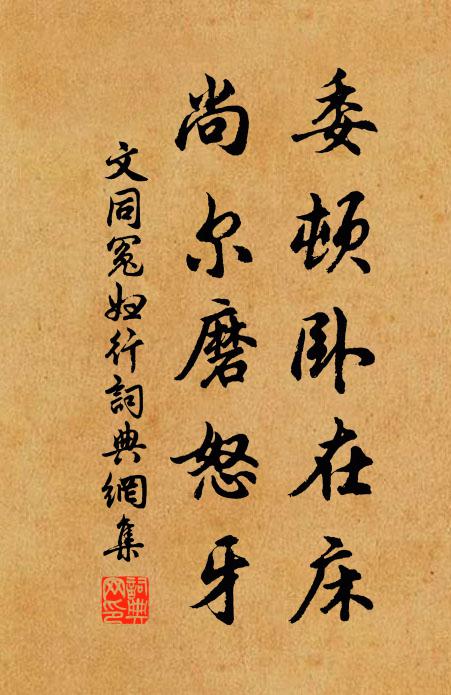 委頓卧在床
尚尔磨怒牙
文同冤妇行詞典網集
詞典
网印